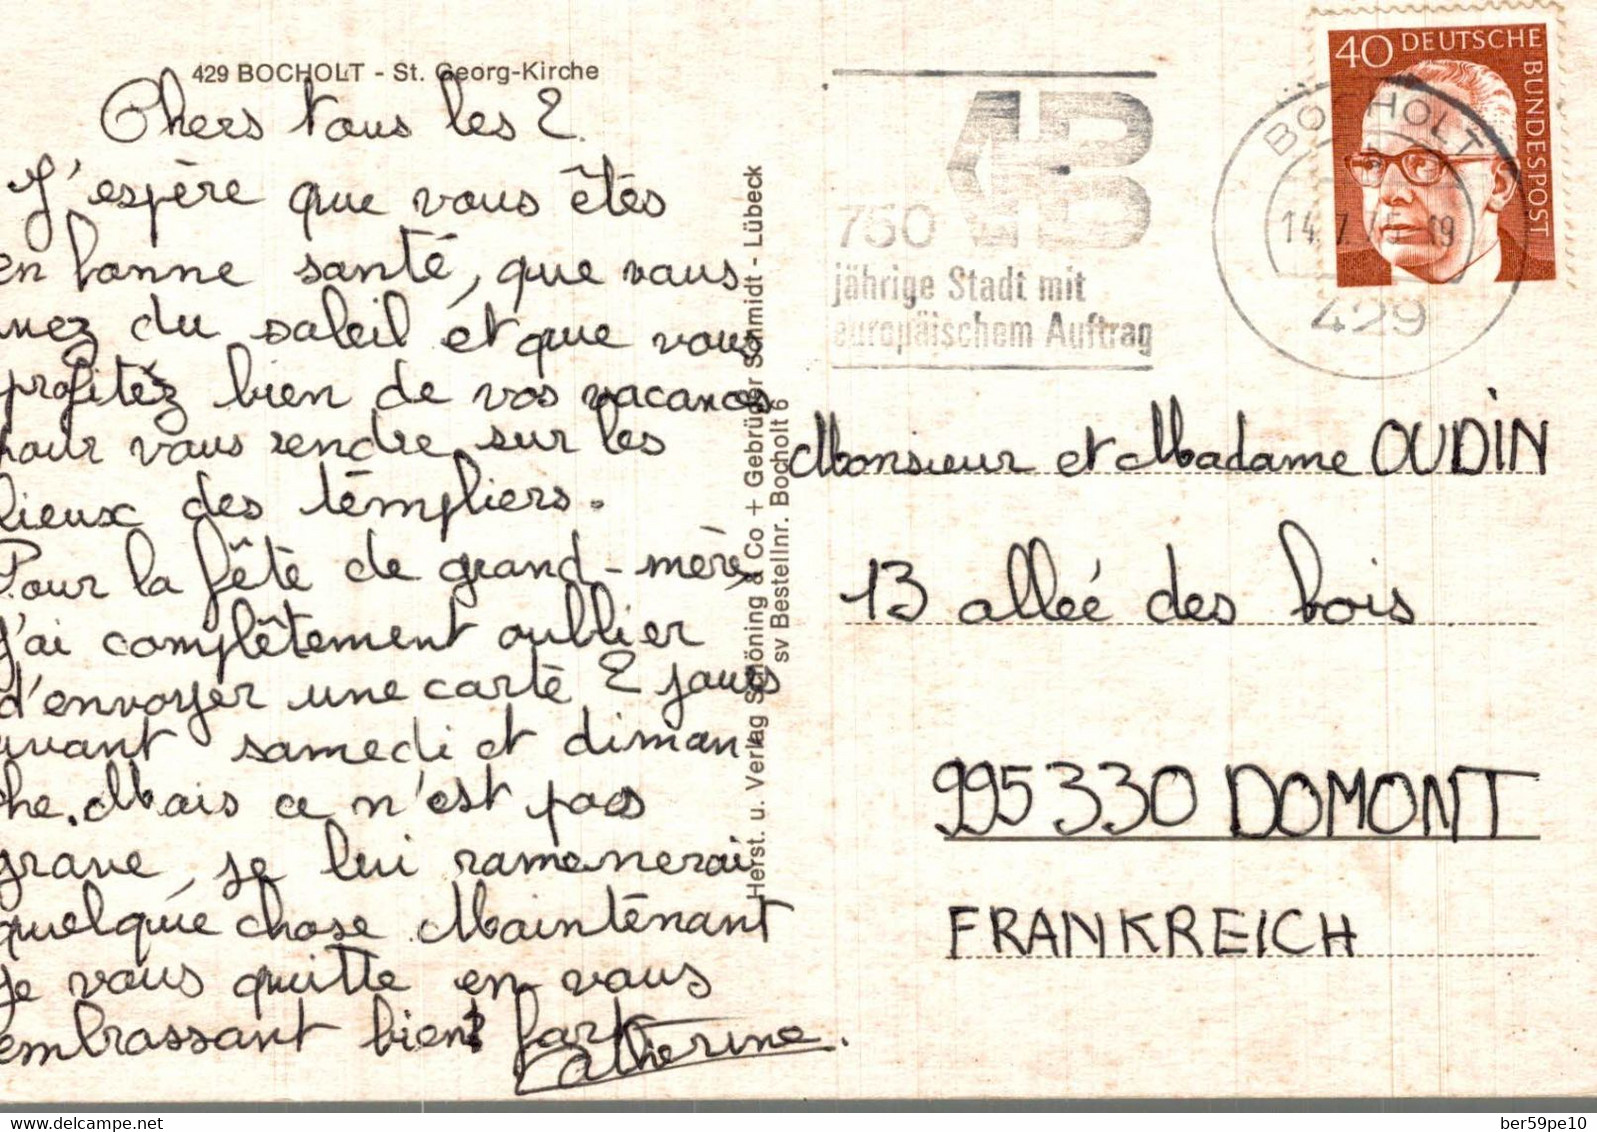 429 BOCHOLT - St. Georg-Kirche
Chers tous les 2.
J'espère que vous êtes
en bonne santé, que vous
avez du soleil et que vous
profitéz bien de vos vacances
pour vous rendre sur les
lieux des témpliers.
Pour la fête de grand-mère,
j'ai complêtement oublier
d'envoyer une carte 2 jours
avant samedi et diman
che. Mais ce n'est pas
grave, je lui ramenerai
quelque chose. Maintenant
je vous quitte en vous
embrassant bien fort
Catherine.
Herst. u. Verlag Schöning & Co + Gebrüder Schmidt - Lübeck
sv Bestellnr. Bocholt 6
750
jährige Stadt mit
europäischem Auftrag
BOCHOLT
429
40 DEUTSCHE
BUNDESPOST
Monsieur et Madame OUDIN
13 alleé des bois
95330 DOMONT
FRANKREICH
delcampe.net
ber59pe10